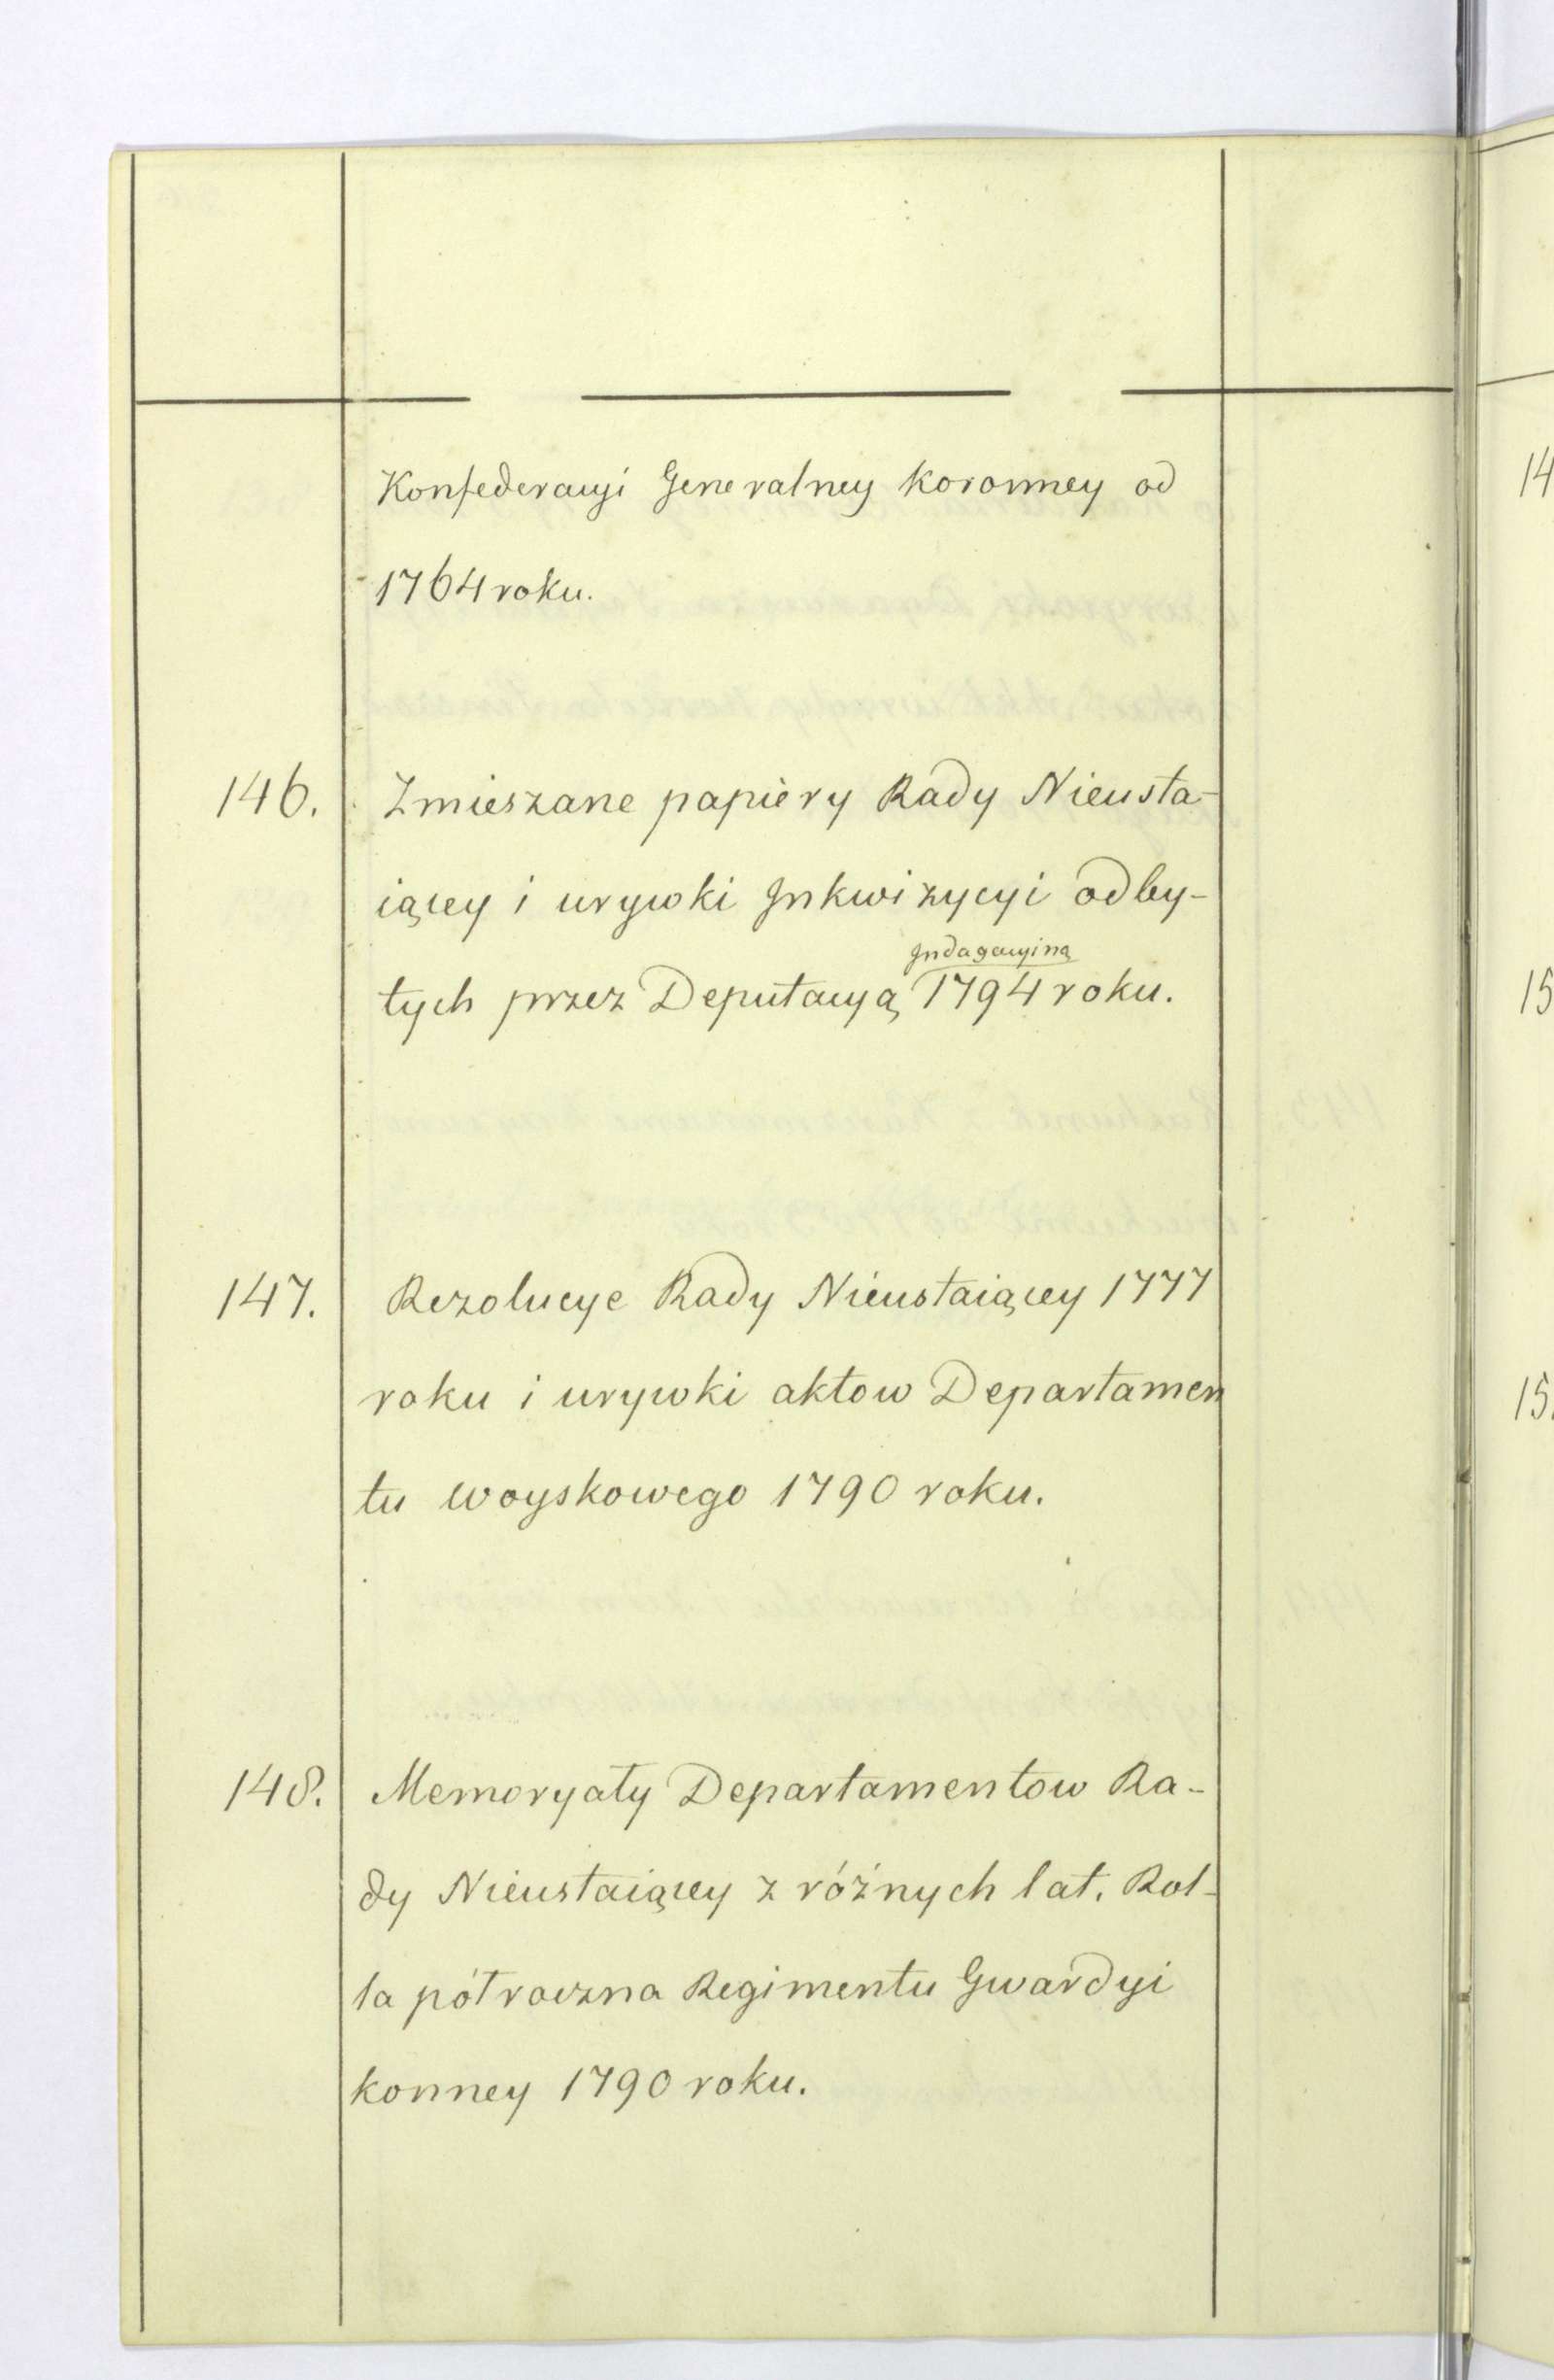 Konfederacyi Generalney Koronney od
1764 roku.
146. Zmieszane papiery Rady Nieusta-
iącey i urywki Inkwizycyi odby-
Indagacyiną
tych przez Deputacyą 1794 roku.
147. Rezolucye Rady Nieustaiącey 1777
roku i urywki aktow Departamen
tu Woyskowego 1790 roku.
148. Memoryały Departamentow Ra-
dy Nieustaiącey z różnych lat. Rol-
la półroczna Regimentu Gwardyi
konney 1790 roku.
14
15
15.